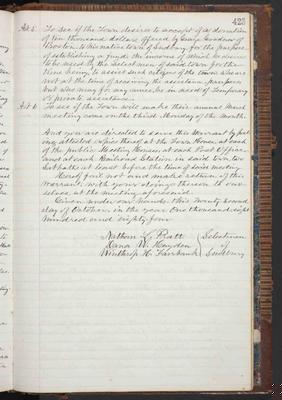 423
Art. 5. To see if the Town desire to accept of a donation
of ten thousand dollars offered by George Goodnow of
Boston to his native town of Sudbury for the purpose
of establishing a fund the income of which is ever
to be used by the Selectmen of said town for the
time being to assist such citizens of the town who are
not at the time of receiving the assistance paupers
but who may for any cause be in need of temporary
or private assistance.
Art. 6. To see if the Town will make their annual March
meeting come on the third Monday of the month.
And you are directed to serve this Warrant by post
ing attested copies thereof at the Town House, at each
of the public Meeting Houses, at each Post Office,
and at each Railroad Station in said town, two
Sabbaths at least before the time of said meeting.
Hereof fail not and make return of this
Warrant with your doings thereon to our
selves at the meeting aforesaid.
Given under our hands this twenty second
day of October, in the year One thousand eight
hundred and eighty four.
Nathan L. Pratt Selectmen
Dana W. Hayden of
Winthrop H. Fairbank Sudbury